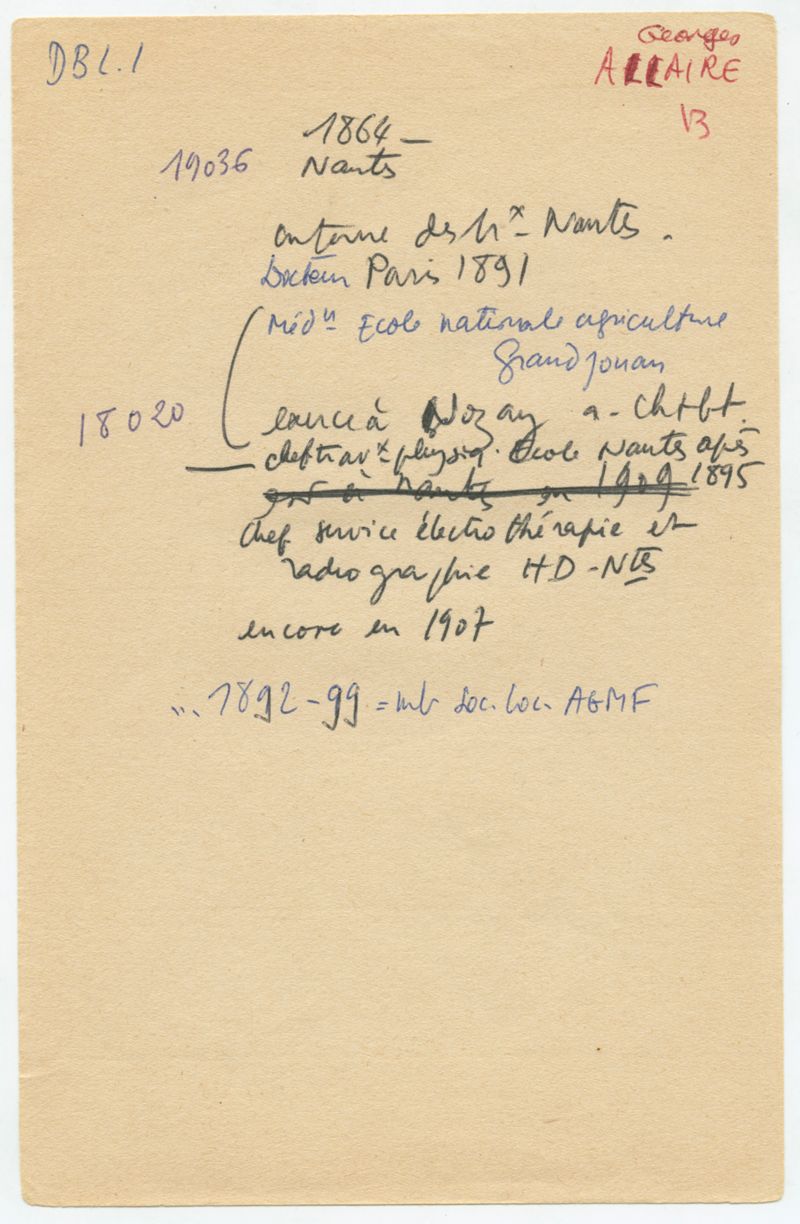 DBL.1
Georges
ALLAIRE
B
1864 –
19036 Nantes
interne des hx Nantes.
Docteur Paris 1891
Médn Ecole nationale agriculture
Grandjouan
18020 exerce à Nozay a. Chtbt.
chef travx physiq. Ecole Nantes après
1895
est à Nantes en 1909
chef service électrothérapie et
radiographie HD-Ntes
encore en 1907
... 1892-99 = mb Soc. loc. AGMF